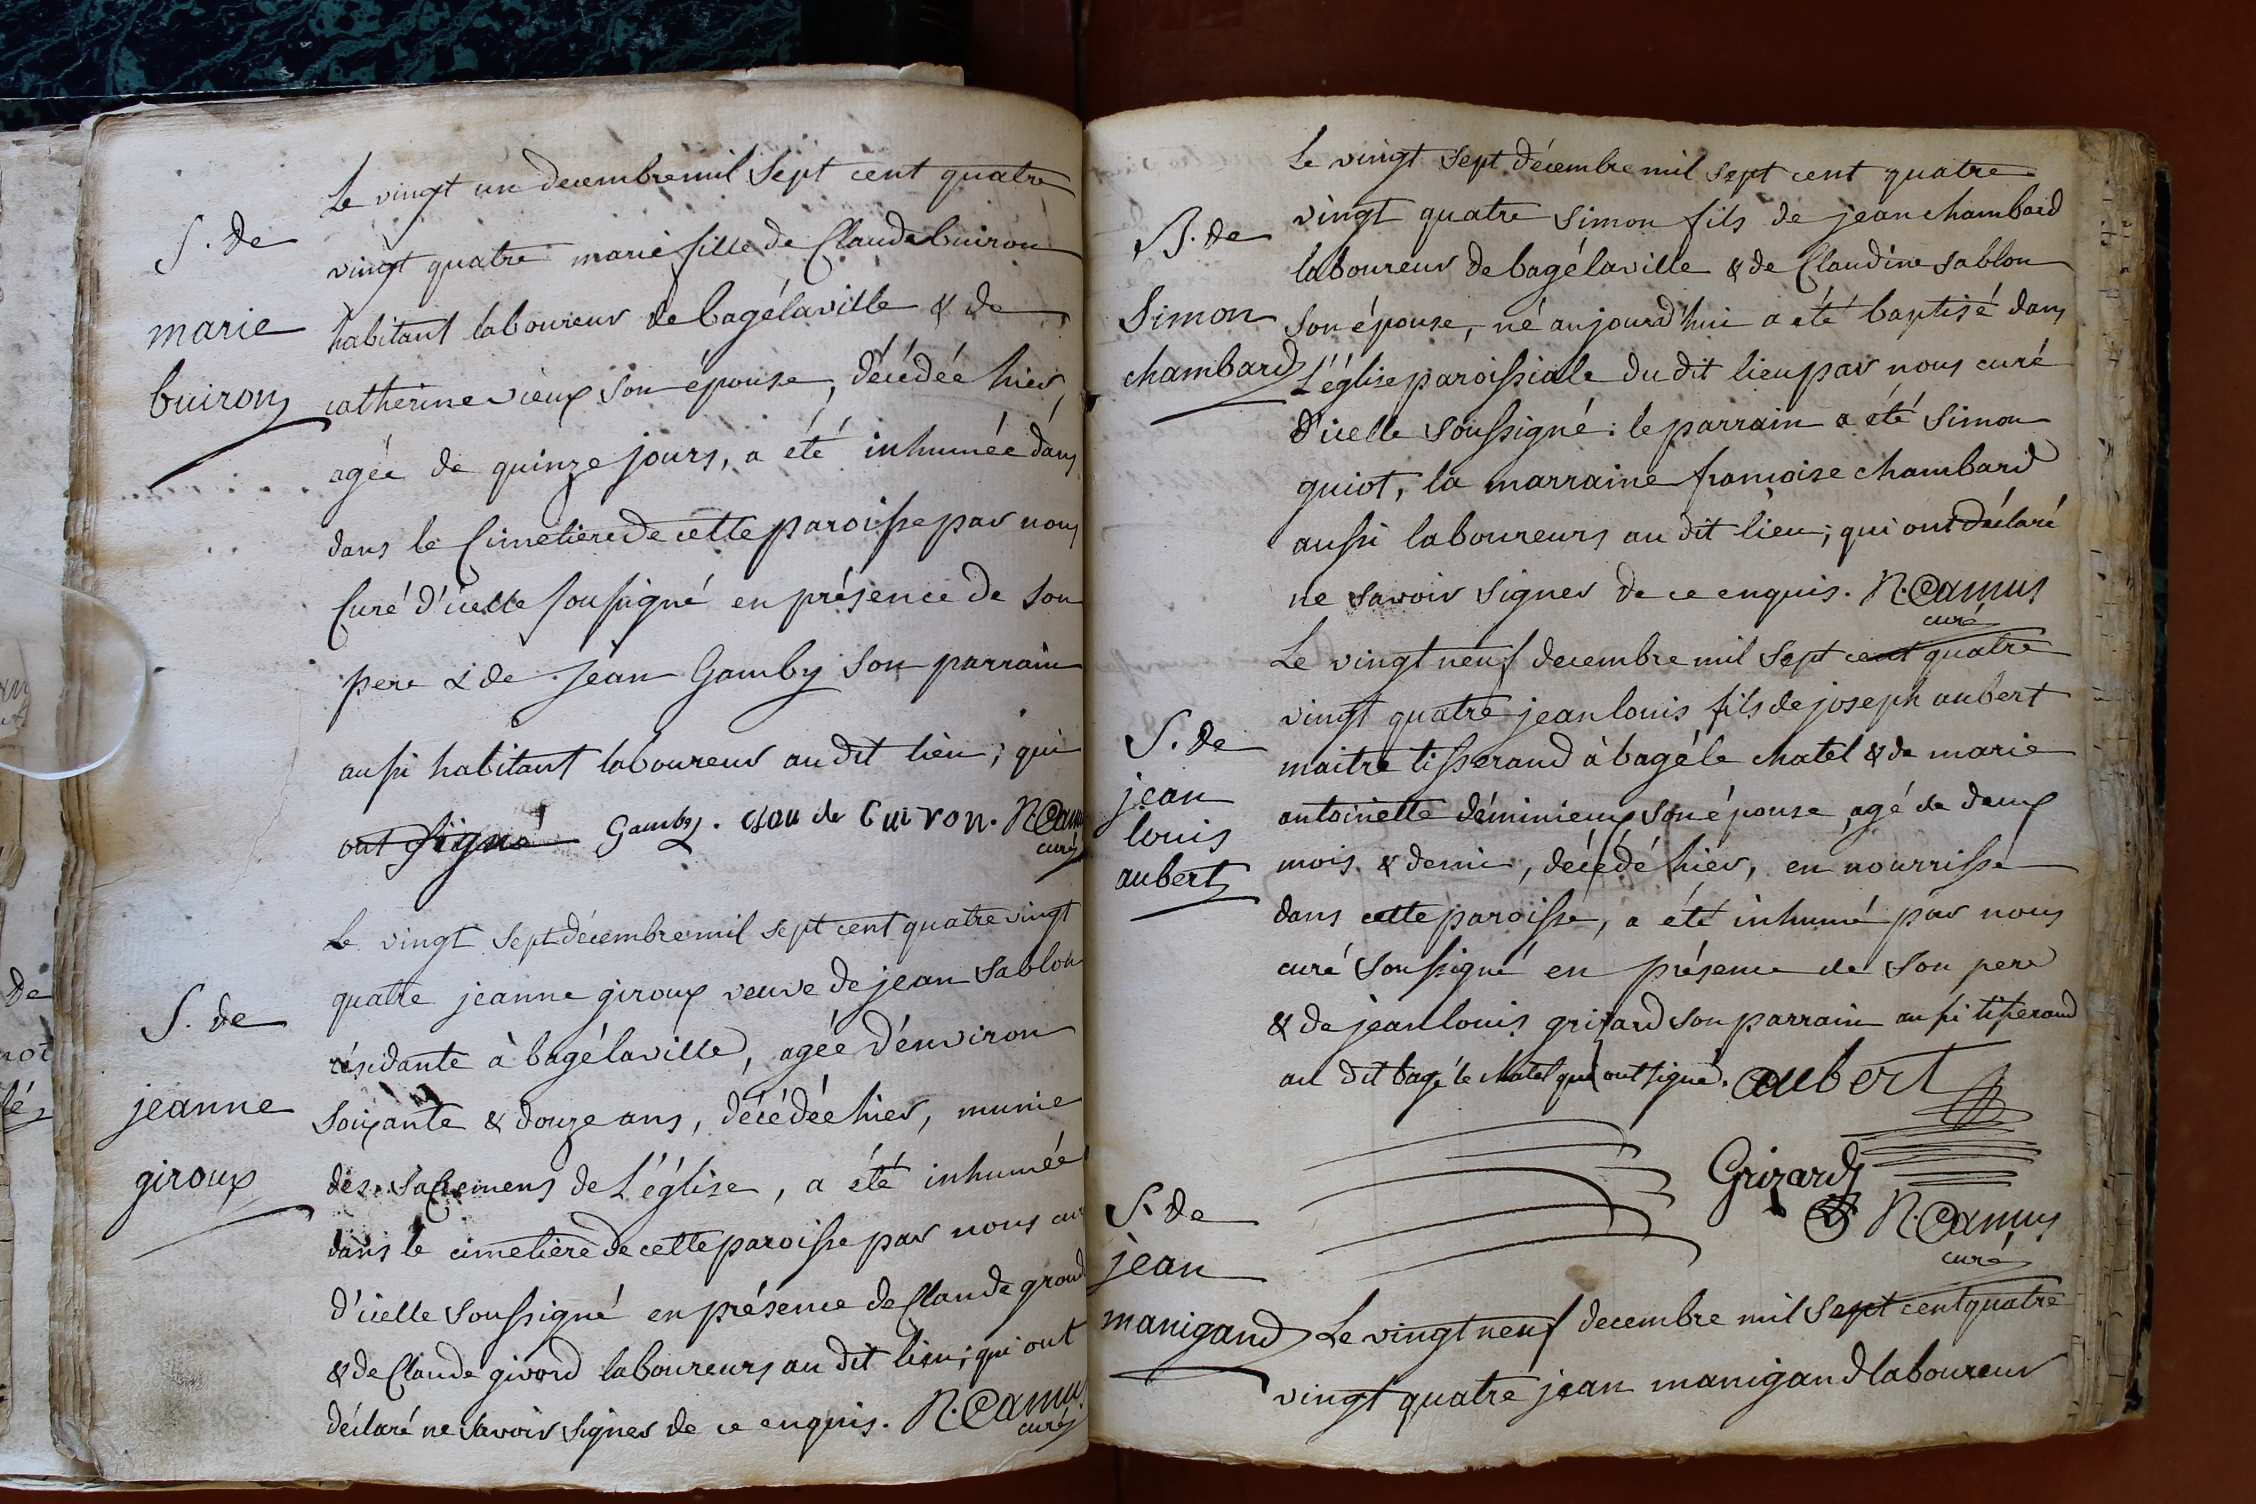 S. de
marie
buiron
Le vingt un decembre mil sept cent quatre
vingt quatre marie fille de Claude buiron
habitant laboureur de bagélaville & de
catherine vieux son épouse, décédée hier,
agée de quinze jours, a été inhumée dans
dans le Cimetiere de cette paroisse par nous
Curé d'icelle soussigné en présence de son
pere & de jean Gamby son parrain
aussi habitant laboureur au dit lieu; qui
ont signé Gamby. Claude buiron. N. Camus
curé
S. de
jeanne
giroux
Le vingt sept décembre mil sept cent quatre vingt
quatre jeanne giroux veuve de jean sablon
résidante à bagélaville, agée d'environ
soixante & douze ans, décédée hier, munie
des sacremens de L'église, a été inhumée
dans le cimetiere de cette paroisse par nous
d'icelle soussigné en présence de Claude grand
& de Claude givord laboureurs au dit lieu; qui ont
déclaré ne savoir signer de ce enquis. N. Camus
curé
B. de
Simon
chambard
Le vingt sept décembre mil sept cent quatre
vingt quatre simon fils de jean chambard
laboureur de bagélaville & de Claudine sablon
son épouse, né aujourd'hui a été baptisé dans
L'église paroissiale du dit lieu par nous curé
d'icelle soussigné: le parrain a été simon
guiot, la marraine francoise chambard
aussi laboureurs au dit lieu; qui ont déclaré
ne savoir signer de ce enquis. N. Camus
curé
S. de
jean
louis
aubert
Le vingt neuf decembre mil sept cent quatre
vingt quatre jean louis fils de joseph aubert
maitre tisserand à bagé le chatel & de marie
antoinette déminieux son épouse, agé de deux
mois & demi, décédé hier, en nourrisse
dans cette paroisse, a été inhumé par nous
curé soussigné en présence de son pere
& de jean louis grizard son parrain aussi tisserand
au dit bagé le chatel qui ont signé. aubert
Grizard
N. Camus
curé
S. de
jean
manigand
Le vingt neuf decembre mil sept cent quatre
vingt quatre jean manigand laboureur